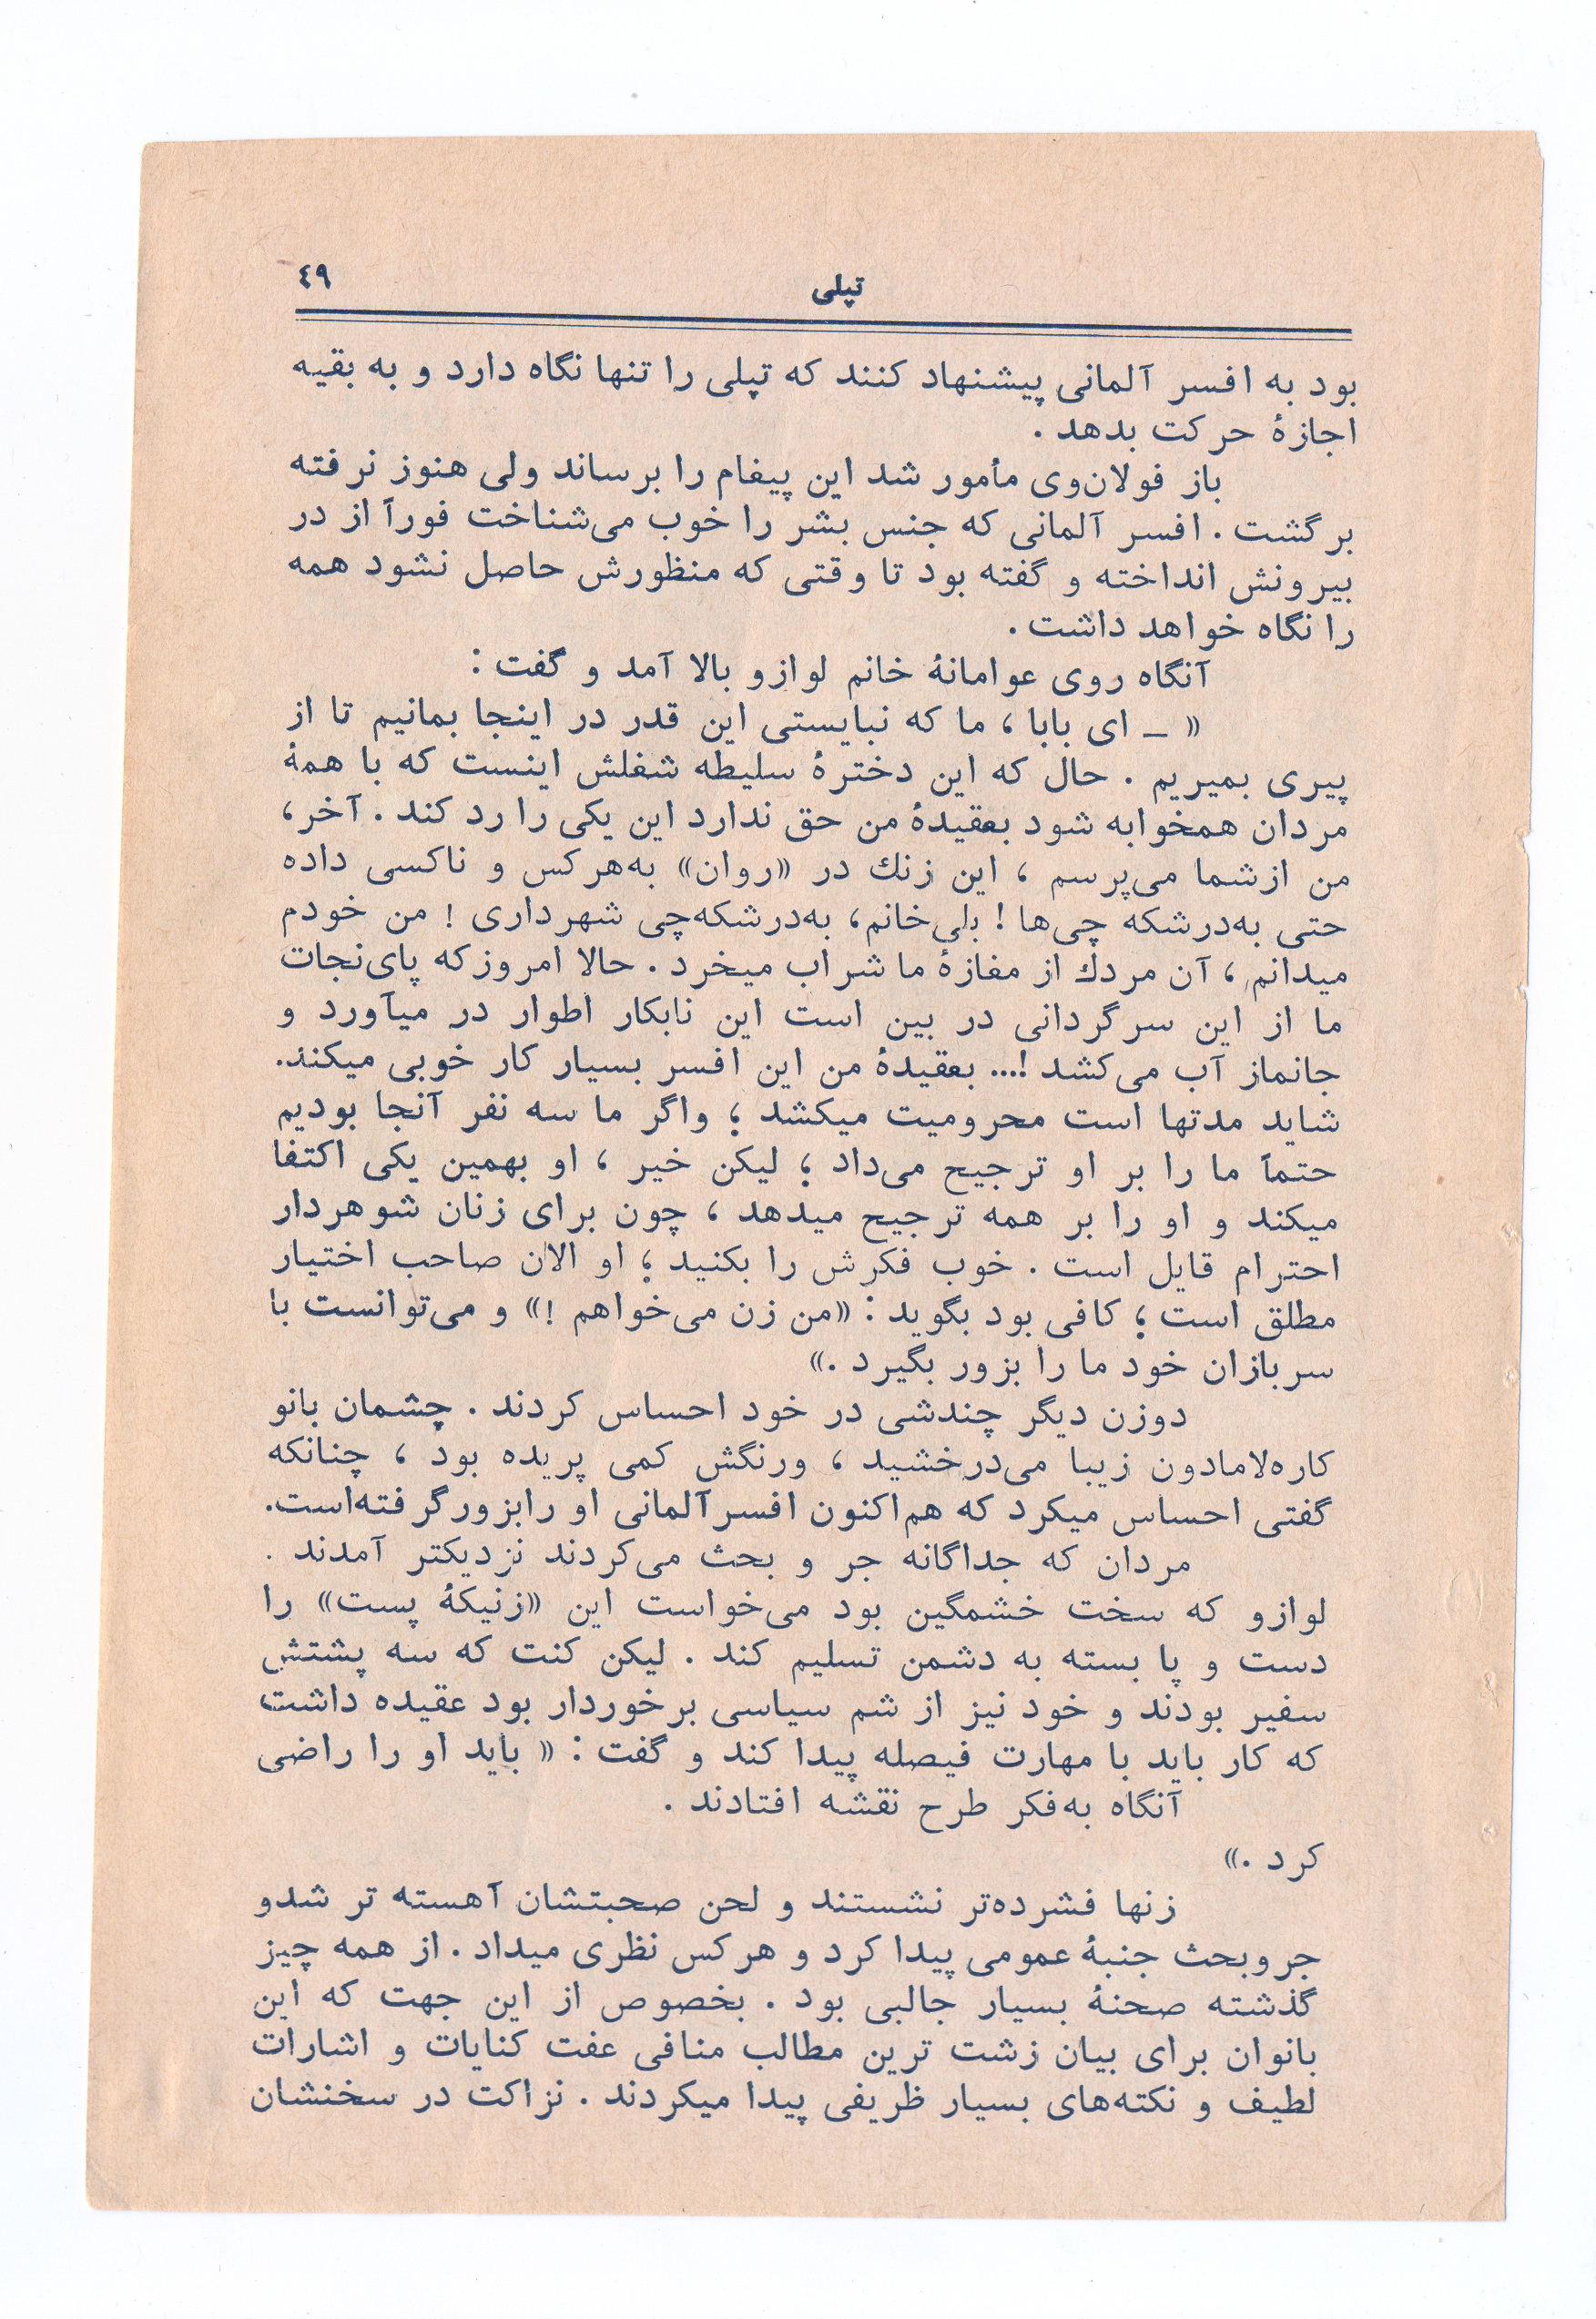 تپلی
٤٩
بود به افسر آلمانی پیشنهاد کنند که تپلی را تنها نگاه دارد و به بقیه
اجازهٔ حرکت بدهد .
باز فولان‌وی مأمور شد این پیغام را برساند ولی هنوز نرفته
برگشت . افسر آلمانی که جنس بشر را خوب می‌شناخت فوراً از در
بیرونش انداخته و گفته بود تا وقتی که منظورش حاصل نشود همه
را نگاه خواهد داشت .
آنگاه روی عوامانهٔ خانم لوازو بالا آمد و گفت :
« ـ ای بابا ، ما که نبایستی این قدر در اینجا بمانیم تا از
پیری بمیریم . حال که این دخترهٔ سلیطه شغلش اینست که با همهٔ
مردان همخوابه شود بعقیدهٔ من حق ندارد این یکی را رد کند . آخر ،
من ازشما می‌پرسم ، این زنك در «روان» به‌هرکس و ناکسی داده
حتی به‌درشکه چی‌ها ! بلی‌خانم، به‌درشکه‌چی شهرداری ! من خودم
میدانم ، آن مردك از مغازهٔ ما شراب میخرد . حالا امروزکه پای‌نجات
ما از این سرگردانی در بین است این نابکار اطوار در میآورد و
جانماز آب می‌کشد !... بعقیدهٔ من این افسر بسیار کار خوبی میکند.
شاید مدتها است محرومیت میکشد ؛ واگر ما سه نفر آنجا بودیم
حتماً ما را بر او ترجیح می‌داد ؛ لیکن خیر ، او بهمین یکی اکتفا
میکند و او را بر همه ترجیح میدهد ، چون برای زنان شوهردار
احترام قایل است . خوب فکرش را بکنید ؛ او الان صاحب اختیار
مطلق است ؛ کافی بود بگوید : «من زن می‌خواهم !» و می‌توانست با
سربازان خود ما را بزور بگیرد .»
دوزن دیگر چندشی در خود احساس کردند . چشمان بانو
کاره‌لامادون زیبا می‌درخشید ، ورنگش کمی پریده بود ، چنانکه
گفتی احساس میکرد که هم‌اکنون افسرآلمانی او رابزورگرفته‌است.
مردان که جداگانه جر و بحث می‌کردند نزدیکتر آمدند .
لوازو که سخت خشمگین بود می‌خواست این «زنیکهٔ پست» را
دست و پا بسته به دشمن تسلیم کند . لیکن کنت که سه پشتش
سفیر بودند و خود نیز از شم سیاسی برخوردار بود عقیده داشت
که کار باید با مهارت فیصله پیدا کند و گفت : « باید او را راضی
آنگاه به‌فکر طرح نقشه افتادند .
کرد .»
زنها فشرده‌تر نشستند و لحن صحبتشان آهسته تر شدو
جروبحث جنبهٔ عمومی پیدا کرد و هرکس نظری میداد . از همه چیز
گذشته صحنهٔ بسیار جالبی بود . بخصوص از این جهت که این
بانوان برای بیان زشت ترین مطالب منافی عفت کنایات و اشارات
لطیف و نکته‌های بسیار ظریفی پیدا میکردند . نزاکت در سخنشان